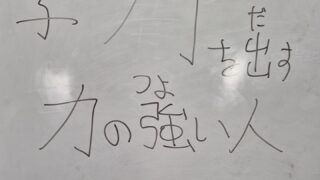 だ
を出す
つよ
力の強い人